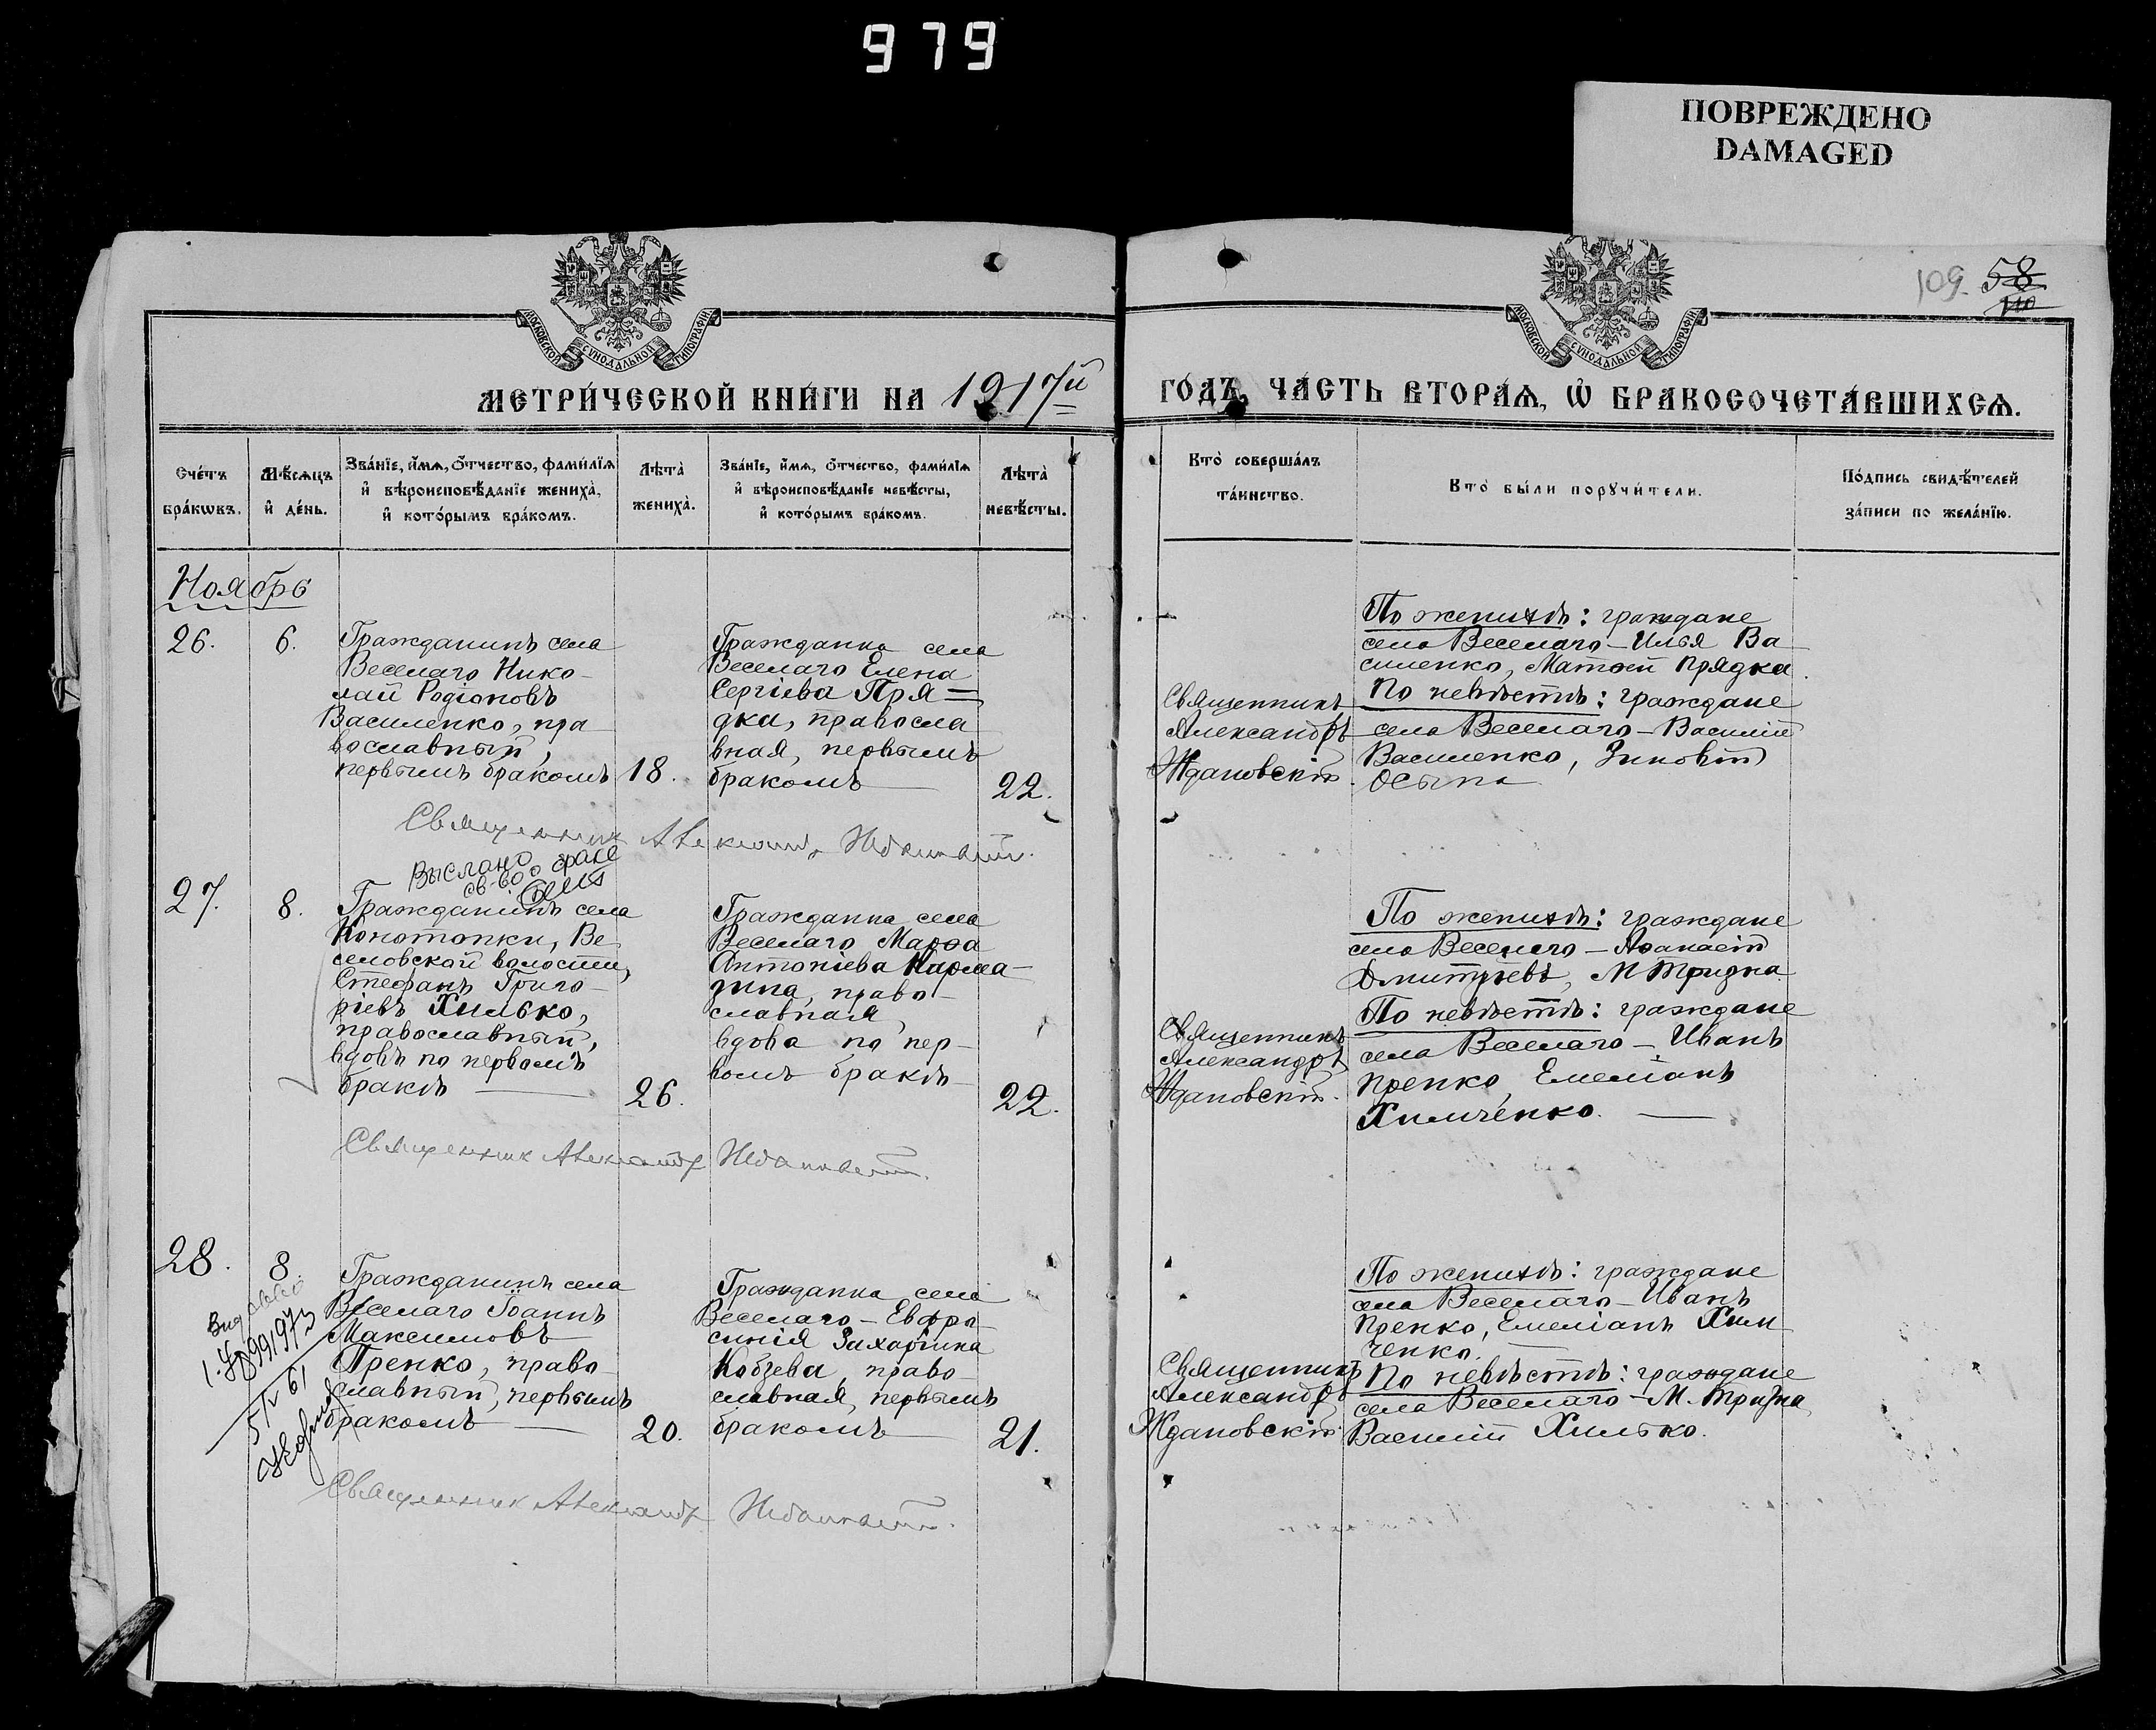 979
ПОВРЕЖДЕНО
DAMAGED
109. 58
110
МОСКОВСКОЙ СѴНОДАЛЬНОЙ ТИПОГРАФІИ
МОСКОВСКОЙ СѴНОДАЛЬНОЙ ТИПОГРАФІИ
МЕТРИ́ЧЕСКОЙ КНИ́ГИ НА 1917й
ГО́ДЪ, ЧА́СТЬ ВТОРА́Ѧ, Ѡ҆ БРАКОСОЧЕТА́ВШИХСѦ.
Сче́тъ
бра́кѡвъ.
Мѣ́сѧцъ
и҆ де́нь.
Зва́нїе, и҆́мѧ, ѻ҆́тчество, фами́лїѧ
и҆ вѣроисповѣ́данїе жениха̀,
и҆ кото́рымъ бра́комъ.
Лѣта̀
жениха̀.
Зва́нїе, и҆́мѧ, ѻ҆́тчество, фами́лїѧ
и҆ вѣроисповѣ́данїе невѣ́сты,
и҆ кото́рымъ бра́комъ.
Лѣта̀
невѣ́сты.
Кто̀ соверша́лъ
та́инство.
Кто̀ бы́ли порꙋчи́тели.
По́дпись свидѣ́телей
за́писи по жела́нїю.
Ноябрь
26.
6.
Гражданинъ села
Веселаго Нико-
лай Родіоновъ
Василенко, пра
вославный,
первымъ бракомъ
18.
Гражданка села
Веселаго Елена
Сергіева Пря=
дка, правосла
вная, первымъ
бракомъ
22.
Священникъ
Александръ
Ждановскій.
По женихѣ: граждане
села Веселаго - Илья Ва
силенко, Матѳей Прядка.
По невѣстѣ: граждане
села Веселаго - Василій
Василенко, Зиновій
Осыпа
Священник Александр Ждановскій.
Выслано
св-во о браке
27.
8.
Гражданинъ села
Конотопки, Ве
селовской волости,
Стефанъ Григо-
ріевъ Хилько,
православный,
вдовъ по первомъ
бракѣ
26.
Гражданка села
Веселаго Марѳа
Антоніева Карма-
зина, право-
славная,
вдова по пер-
вомъ бракѣ
22.
Священникъ
Александръ
Ждановскій.
По женихѣ: граждане
села Веселаго - Аѳанасій
Дмитріевъ, М Тризна
По невѣстѣ: граждане
села Веселаго - Иванъ
Пренко, Емеліанъ
Химченко.
Священник Александр Ждановскій.
28.
8.
5/V 61
Гражданинъ села
Веселаго Іоаннъ
Максимовъ
Пренко, право-
славный, первымъ
бракомъ
20.
Гражданка села
Веселаго - Евфро-
синія Захаріина
Кобзева, право-
славная, первымъ
бракомъ
21.
Священникъ
Александръ
Ждановскій.
По женихѣ: граждане
села Веселаго - Иванъ
Пренко, Емеліанъ Хим
ченко.
По невѣстѣ: граждане
села Веселаго - М. Тризна,
Василій Хилько.
Священник Александр Ждановскій.